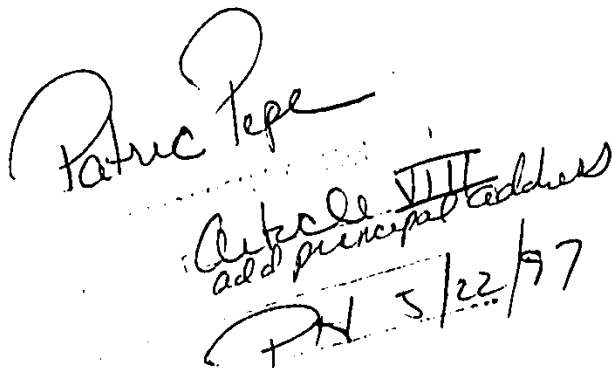 Patric Pepe
Article VIII
add principal address
PH 5/22/97